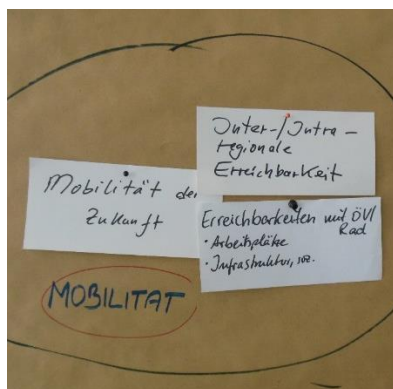 Inter-/Intra-
regionale
Erreichbarkeit
Mobilität der
Zukunft
Erreichbarkeiten mit ÖV/
Rad
• Arbeitsplätze
• Infrastruktur, soz.
MOBILITÄT